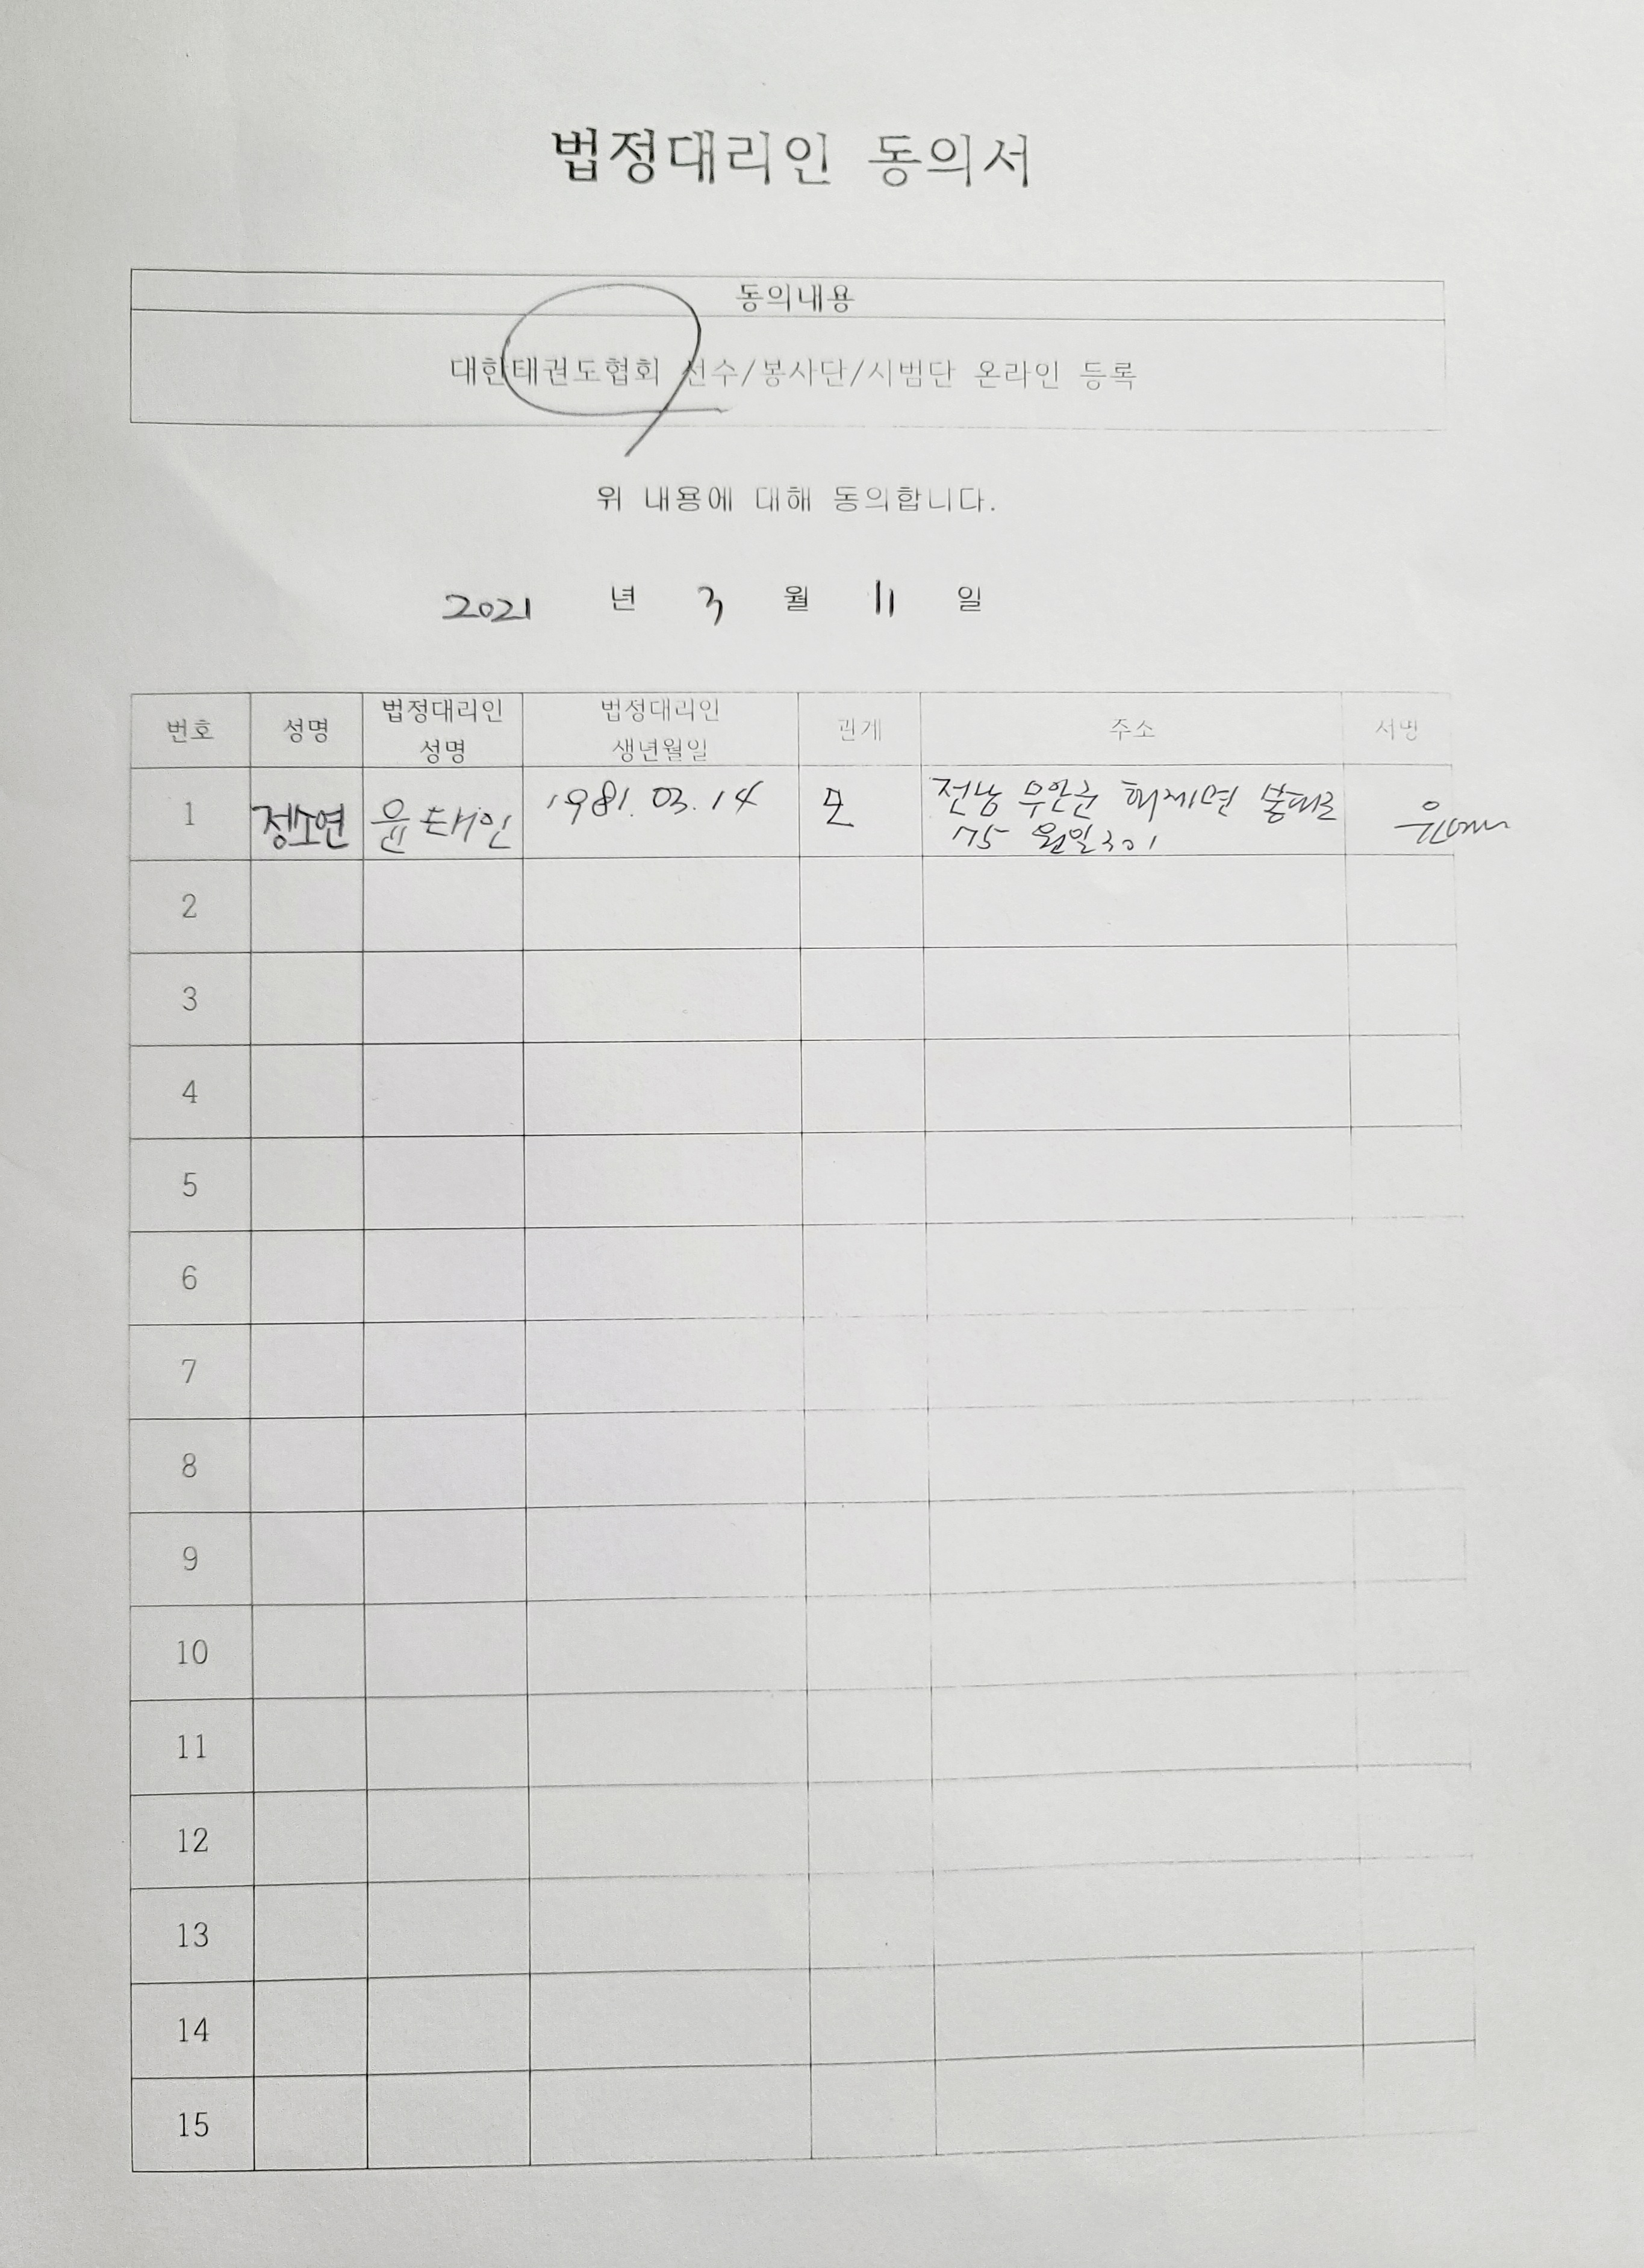 법정대리인 동의서
동의내용
대한태권도협회 선수/봉사단/시범단 온라인 등록
위 내용에 대해 동의합니다.
2021 년 3 월 11 일
번호 성명 법정대리인 성명 법정대리인 생년월일 관계 주소 서명
1 정소연 윤태인 1981. 03. 14 모 전남 무안군
75 301
2
3
4
5
6
7
8
9
10
11
12
13
14
15